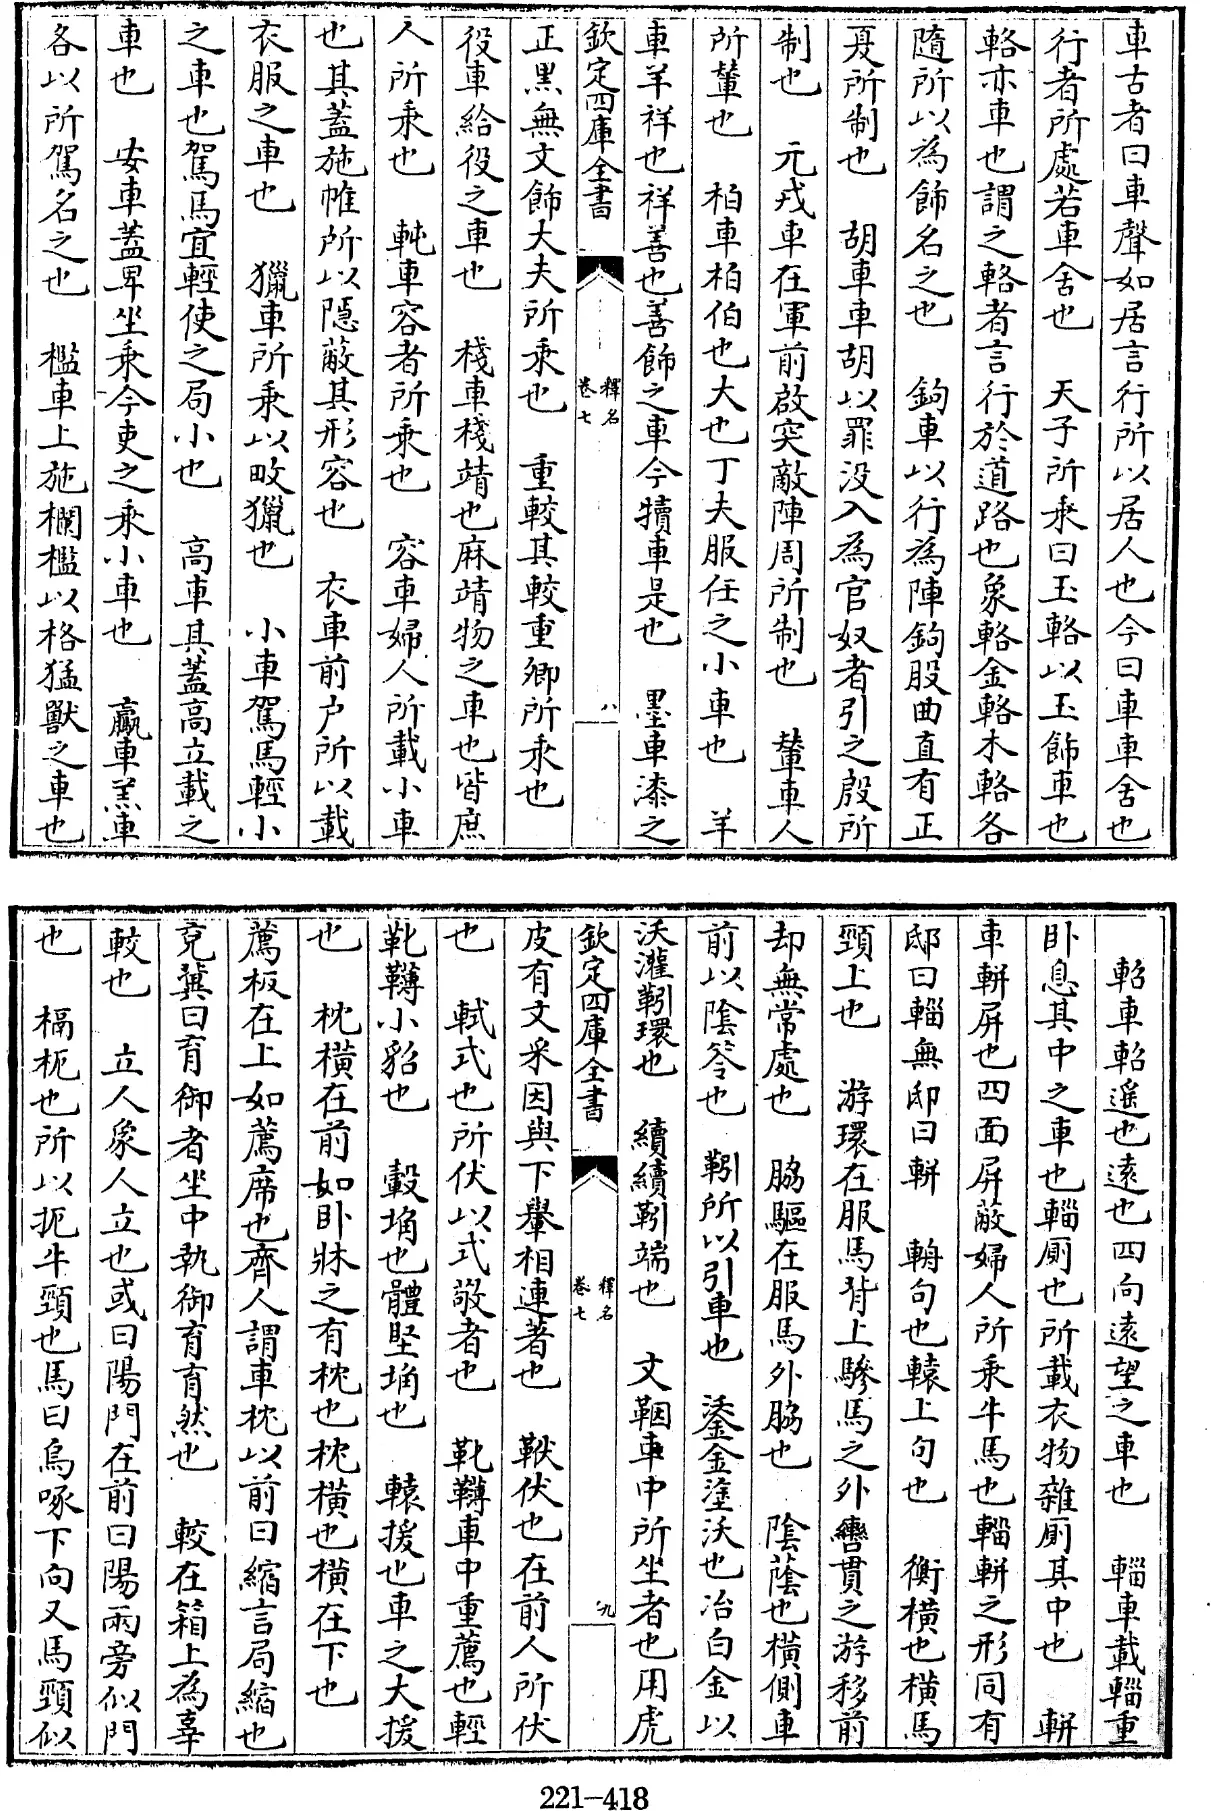 車古者曰車聲如居言行所以居人也今曰車車舍也
行者所處若車舍也　天子所乘曰玉輅以玉飾車也
輅亦車也謂之輅者言行於道路也象輅金輅木輅各
隨所以為飾名之也　鉤車以行為陣鉤股曲直有正
夏所制也　胡車車胡以罪没入為官奴者引之殷所
制也　元戎車在軍前啟突敵陣周所制也　輦車人
所輦也　柏車柏伯也大也丁夫服任之小車也　羊
車羊祥也祥善也善飾之車今犢車是也　墨車漆之
欽定四庫全書　釋名　卷七　八
正黑無文飾大夫所乘也　重較其較重卿所乘也
役車給役之車也　棧車棧靖也麻靖物之車也皆庶
人所乘也　軘車容者所乘也　容車婦人所載小車
也其蓋施帷所以隱蔽其形容也　衣車前户所以載
衣服之車也　獵車所乘以畋獵也　小車駕馬輕小
之車也駕馬宜輕使之局小也　高車其蓋高立載之
車也　安車蓋卑坐乘今吏之乘小車也　羸車羔車
各以所駕名之也　檻車上施欄檻以格猛獸之車也
軺車軺遥也遠也四向遠望之車也　輜車載輜重
卧息其中之車也輜厠也所載衣物雜厠其中也　軿
車軿屏也四面屏蔽婦人所乘牛馬也輜軿之形同有
邸曰輜無邸曰軿　軥句也轅上句也　衡横也横馬
頸上也　游環在服馬背上驂馬之外轡貫之游移前
却無常處也　脇驅在服馬外脇也　陰蔭也横側車
前以陰笭也　靷所以引車也　鋈金塗沃也冶白金以
沃灌靷環也　續續靷端也　文鞇車中所坐者也用虎
欽定四庫全書　釋名　卷七　九
皮有文采因與下轝相連著也　靯伏也在前人所伏
也　軾式也所伏以式敬者也　靴䪙車中重薦也輕
靴䪙小貂也　轂埆也體堅埆也　轅援也車之大援
也　枕横在前如卧牀之有枕也枕横也横在下也
薦板在上如薦席也齊人謂車枕以前曰縮言局縮也
兖冀曰育御者坐中執御育育然也　較在箱上為辜
較也　立人象人立也或曰陽門在前曰陽兩旁似門
也　槅枙也所以扼牛頸也馬曰烏啄下向又馬頸似
221-418